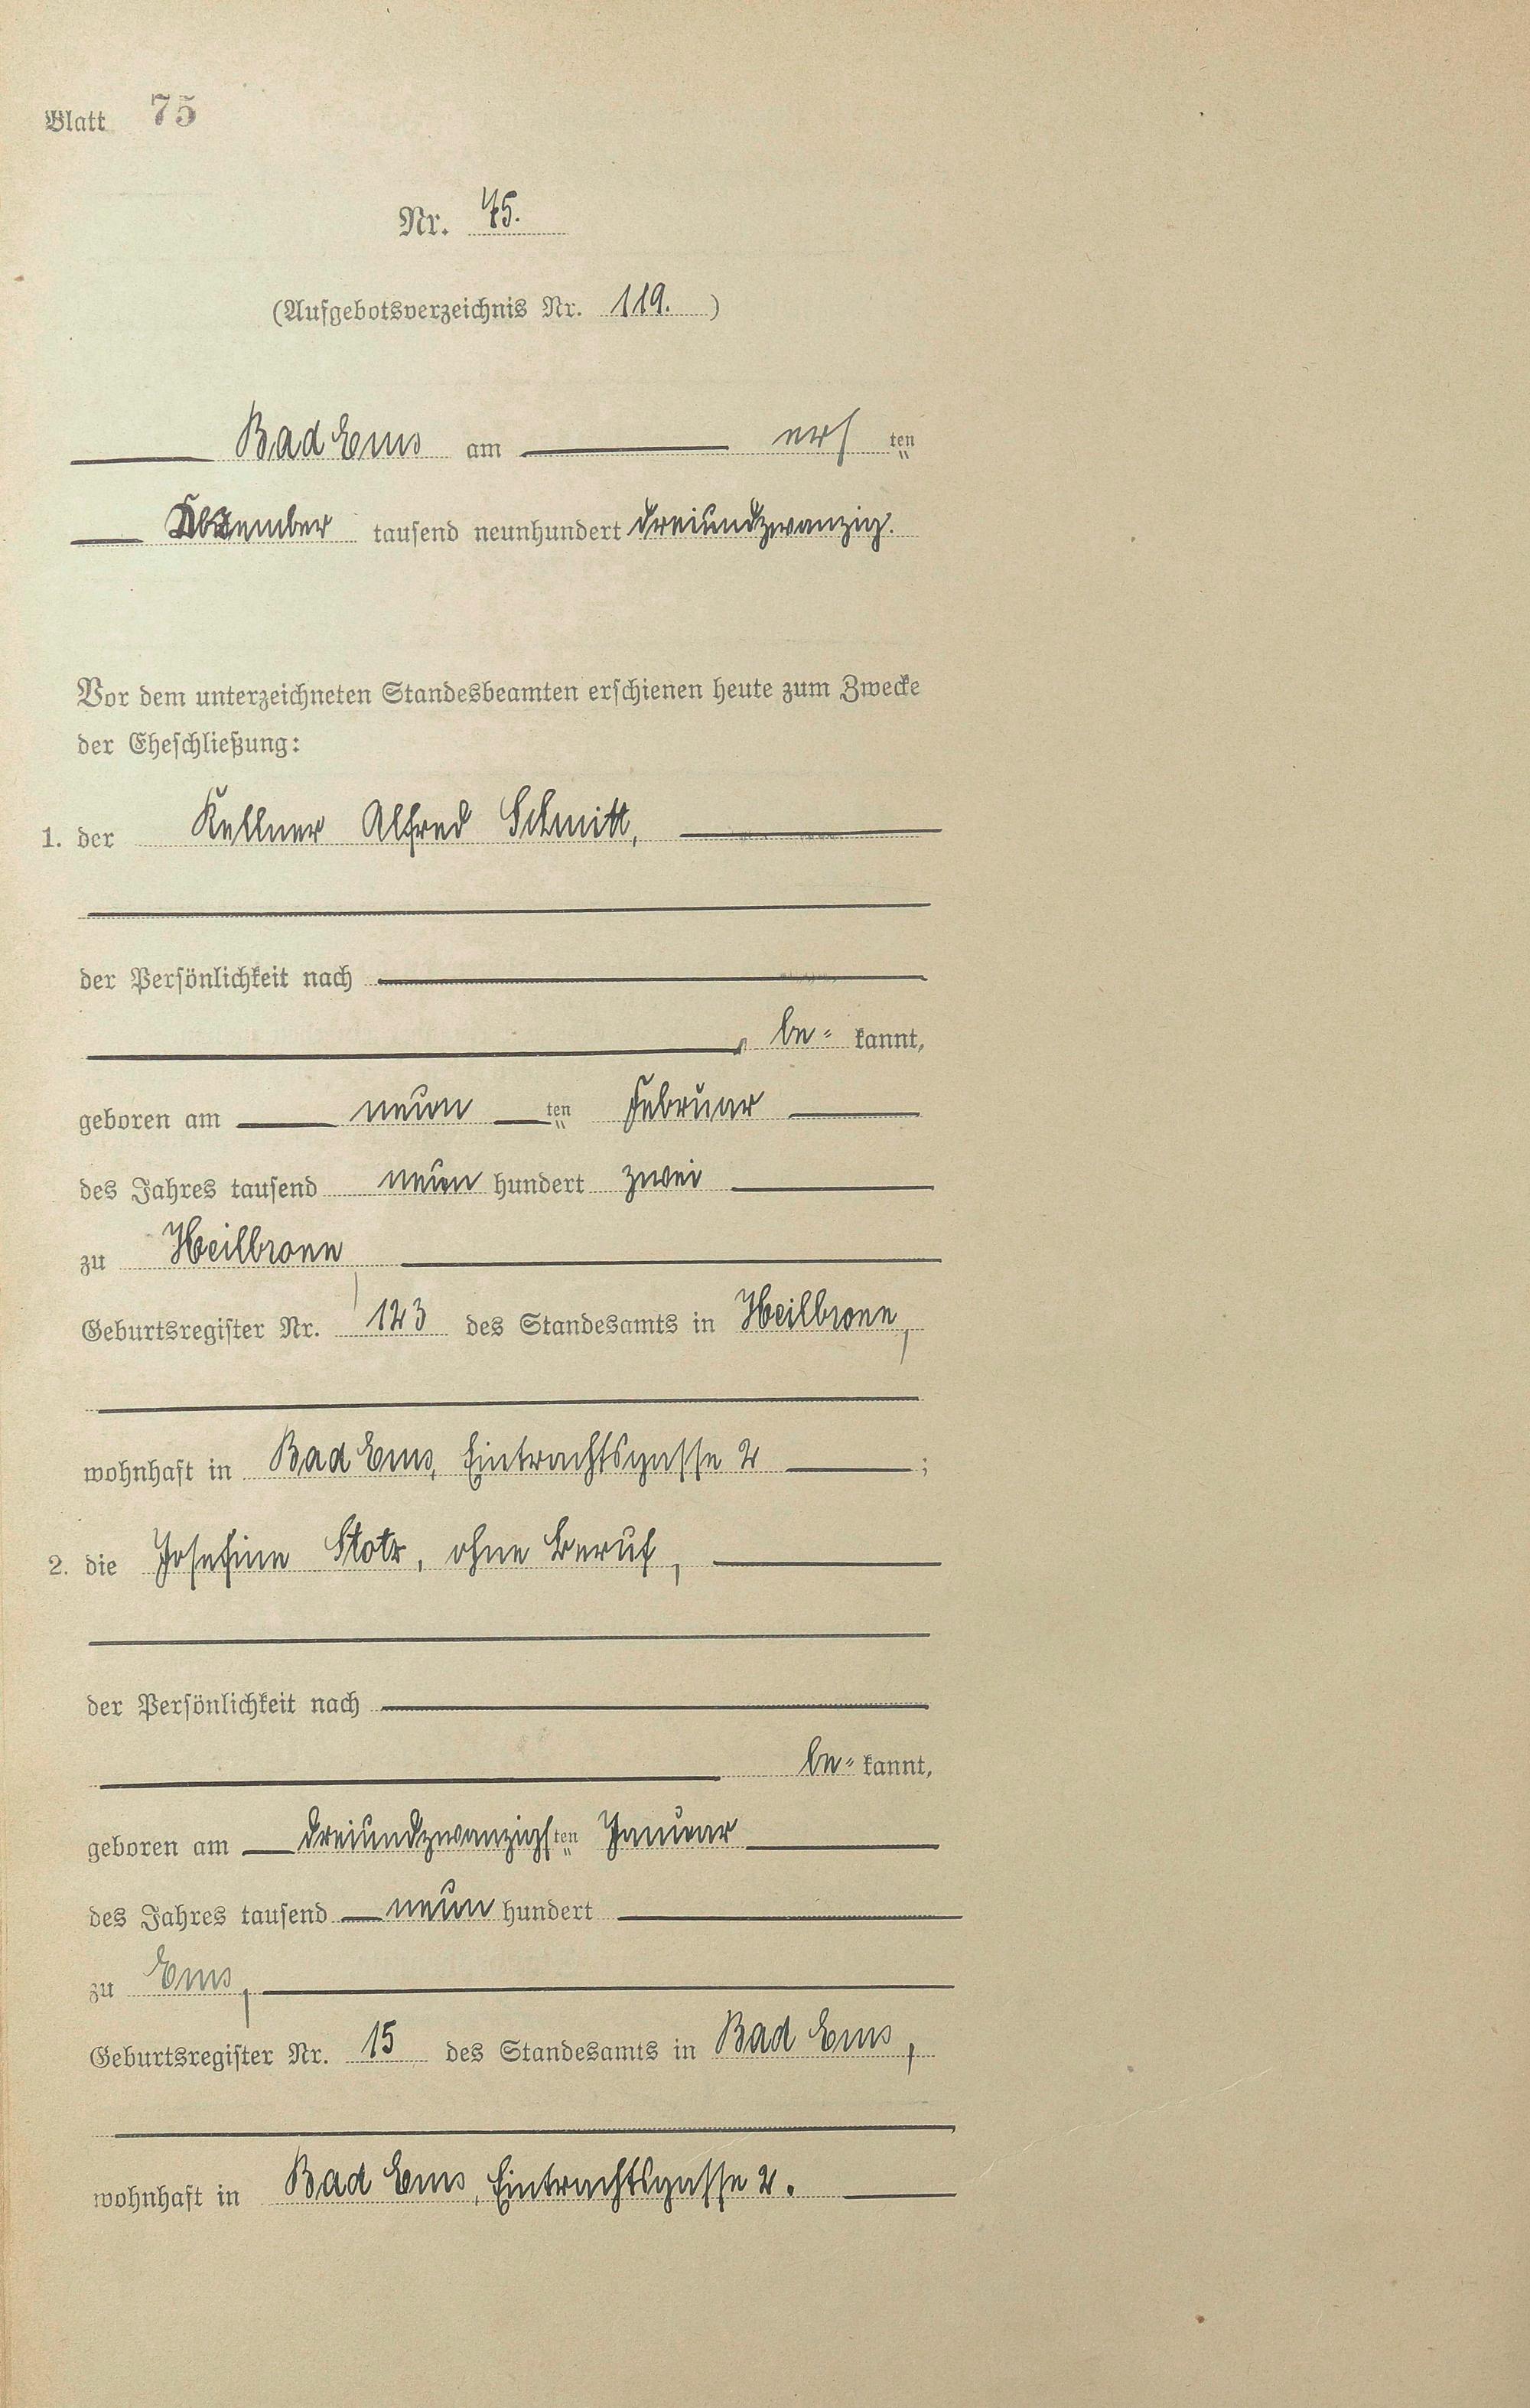 Blatt 75
Nr. 75.
(Aufgebotsverzeichnis Nr. 119.)
Bad Ems am ersten
Dezember tausend neunhundert dreiundzwanzig.
Vor dem unterzeichneten Standesbeamten erschienen heute zum Zwecke
der Eheschließung:
1. der Kellner Alfred Schmitt,
der Persönlichkeit nach
be= kannt,
geboren am neun ten Februar
des Jahres tausend neun hundert zwei
zu Heilbronn
Geburtsregister Nr. 123 des Standesamts in Heilbronn,
wohnhaft in Bad Ems, Eintrachtsgasse 2 ;
2. die Josefine Stotz, ohne Beruf,
der Persönlichkeit nach
be= kannt,
geboren am dreiundzwanzigsten Januar
des Jahres tausend neun hundert
zu Ems,
Geburtsregister Nr. 15 des Standesamts in Bad Ems,
wohnhaft in Bad Ems, Eintrachtsgasse 2.